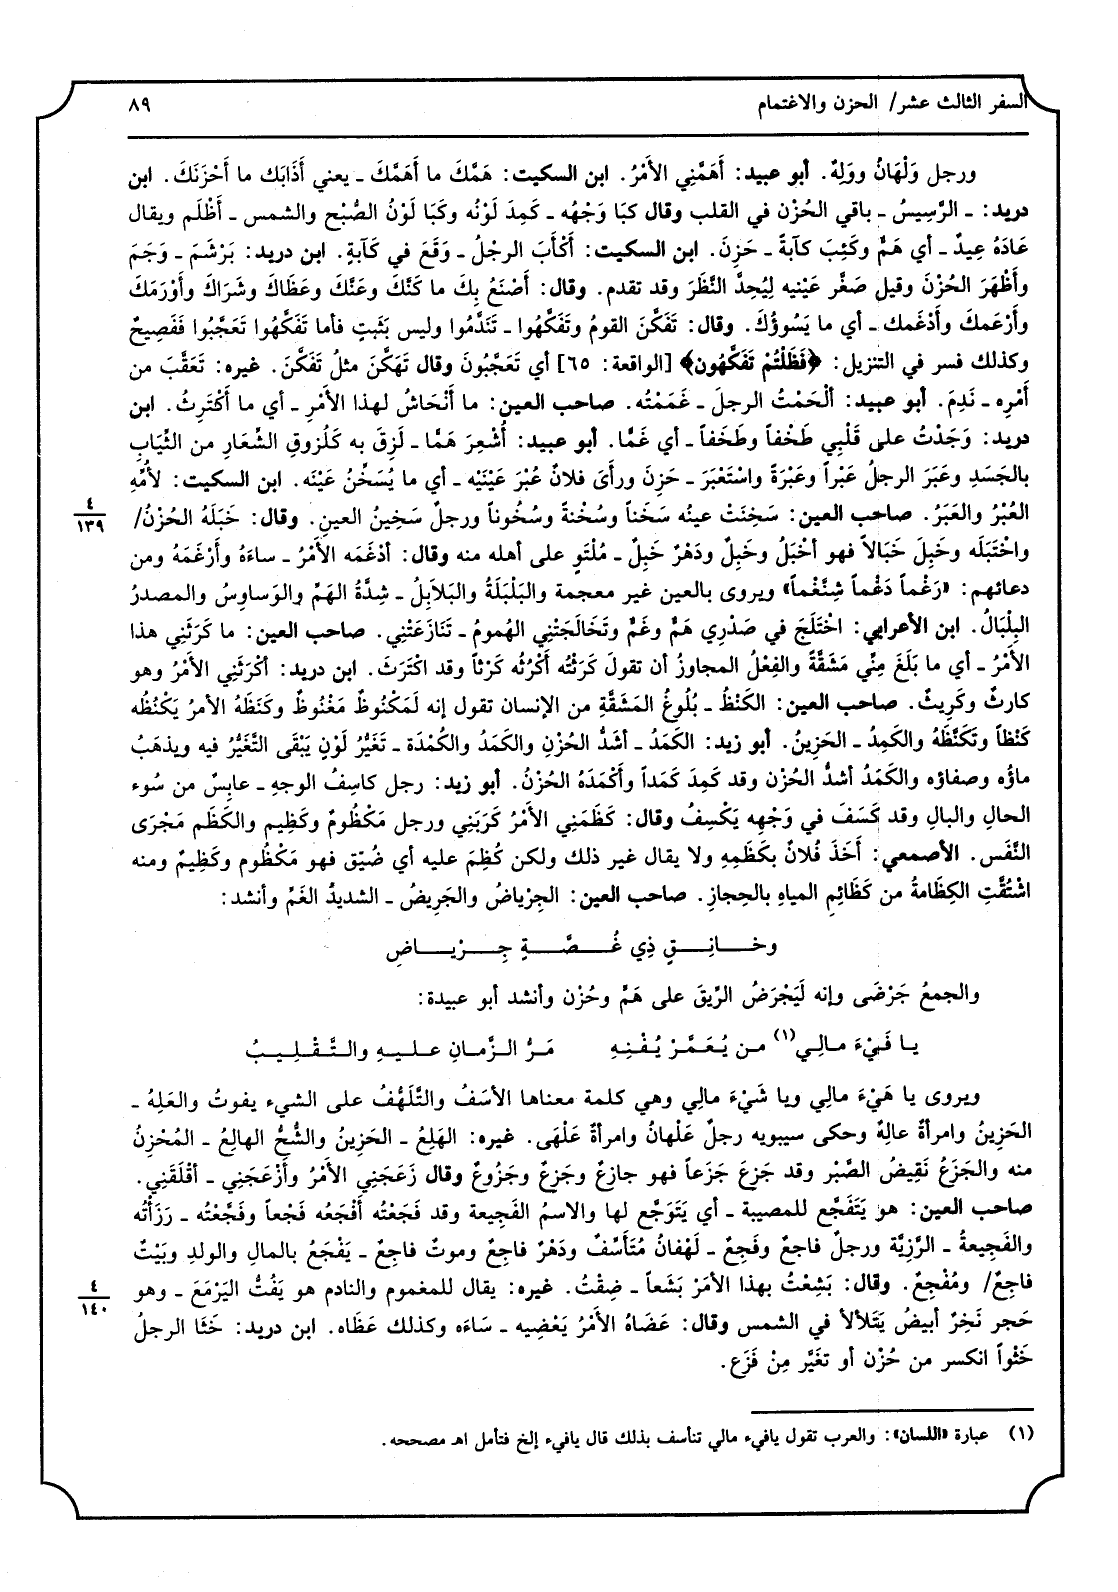 السفر الثالث عشر/ الحزن والاغتمام ٨٩
ورجل وَلْهَانُ ووَلِهٌ. أبو عبيد: أَهَمَّنِي الأَمْرُ. ابن السكيت: هَمَّكَ ما أَهَمَّكَ ـ يعني أَذَابَك ما أَحْزَنَكَ. ابن
دريد: ـ الرَّسِيسُ ـ باقي الحُزْن في القلب وقال كبَا وَجْهُه ـ كَمِدَ لَوْنُه وكَبَا لَوْنُ الصُّبْح والشمس ـ أَظْلَم ويقال
عَادَهُ عِيدٌ ـ أي هَمٌّ وكَئِبَ كآبةً ـ حَزِنَ. ابن السكيت: أَكْأَبَ الرجلُ ـ وَقَعَ في كَآبةٍ. ابن دريد: بَرْشَمَ ـ وَجَمَ
وأَظْهَرَ الحُزْنَ وقيل صَغَّر عَيْنيه لِيُحِدَّ النَّظَرَ وقد تقدم. وقال: أَصْنَعُ بِكَ ما كَنَّكَ وعَنَّكَ وعَظَاكَ وشَرَاكَ وأَوْرَمَكَ
وأَرْغَمكَ وأَدْغَمك ـ أي ما يَسُوؤُكَ. وقال: تَفَكَّنَ القومُ وتَفَكَّهُوا ـ تَنَدَّمُوا وليس بَثَبتٍ فأما تَفَكَّهُوا تَعَجَّبُوا فَفَصِيحٌ
وكذلك فسر في التنزيل: ﴿فَظَلْتُمْ تَفَكَّهُون﴾ [الواقعة: ٦٥] أي تَعَجَّبُونَ وقال تَهَكَّنَ مثلُ تَفَكَّنَ. غيره: تَعَقَّبَ من
أَمْرِه ـ نَدِمَ. أبو عبيد: أَلْحَمْتُ الرجلَ ـ غَمَمْتُه. صاحب العين: ما أَنْحَاشُ لهذا الأَمْرِ ـ أي ما أَكْتَرِثُ. ابن
دريد: وَجَدْتُ على قَلْبِي طَخْفاً وطَخَفاً ـ أي غَمًّا. أبو عبيد: أُشْعِرَ هَمًّا ـ لَزِقَ به كَلُزوقِ الشِّعَارِ من الثِّيَابِ
بالجَسَدِ وعَبَرَ الرجلُ عَبْراً وعَبْرَةً واسْتَعْبَرَ ـ حَزِنَ ورأَى فلانٌ عُبْرَ عَيْنَيْه ـ أي ما يُسَخِّنُ عَيْنَه. ابن السكيت: لأُمِّهِ
العُبْرُ والعَبَرُ. صاحب العين: سَخِنَتْ عينُه سَخَناً وسُخْنةً وسُخُوناً ورجلٌ سَخِينُ العينِ. وقال: خَبَلَهُ الحُزْنُ/
٤
١٣٩
واخْتَبَلَه وخَبِلَ خَبَالاً فهو أَخْبَلُ وخَبِلٌ ودَهْرٌ خَبِلٌ ـ مُلْتَوٍ على أهله منه وقال: أَدْغَمَه الأَمْرُ ـ ساءَهُ وأَرْغَمَهُ ومن
دعائهم: «رَغْماً دَغْماً شِنَّغْماً» ويروى بالعين غير معجمة والبَلْبَلَةُ والبَلاَبِلُ ـ شِدَّةُ الهَمِّ والوَساوِسُ والمصدرُ
البِلْبَالُ. ابن الأعرابي: اخْتَلَجَ في صَدْرِي هَمٌّ وغَمٌّ وتَخَالَجَتْنِي الهُمومُ ـ تَنَازَعَتْنِي. صاحب العين: ما كَرَثَنِي هذا
الأَمْرُ ـ أي ما بَلَغَ مِنِّي مَشَقَّةً والفِعْلُ المجاوزُ أن تقولَ كَرَثْتُه أَكْرُثُه كَرْثاً وقد اكْتَرَثَ. ابن دريد: أَكْرَثَنِي الأَمْرُ وهو
كارثٌ وكَرِيثٌ. صاحب العين: الكَنْظُ ـ بُلُوغُ المَشَقَّةِ من الإنسان تقول إنه لَمَكْنُوظٌ مَغْنُوظٌ وكَنَظَهُ الأمرُ يَكْنُظُه
كَنْظاً وتَكَنَّظَهُ والكَمِدُ ـ الحَزِينُ. أبو زيد: الكَمَدُ ـ أَشَدُّ الحُزْنِ والكَمَدُ والكُمْدَة ـ تَغَيُّر لَوْنٍ يَبْقَى التَّغَيُّرُ فيه ويذهَبُ
ماؤه وصفاؤه والكَمَدُ أشدُّ الحُزْن وقد كَمِدَ كَمَداً وأَكْمَدَهُ الحُزْنُ. أبو زيد: رجل كاسِفُ الوجهِ ـ عابِسٌ من سُوء
الحالِ والبالِ وقد كَسَفَ في وَجْهِه يَكْسِفُ وقال: كَظَمَنِي الأَمْرُ كَرَبَنِي ورجل مَكْظُومٌ وكَظِيم والكَظَم مَجْرَى
النَّفَس. الأصمعي: أَخَذَ فُلانٌ بكَظَمِهِ ولا يقال غير ذلك ولكن كُظِمَ عليه أي ضُيّق فهو مَكْظُوم وكَظِيمٌ ومنه
اشْتُقَّتِ الكِظَامةُ من كَظَائِم المياهِ بالحِجازِ. صاحب العين: الجِرْياضُ والجَرِيضُ ـ الشديدُ الغَمِّ وأنشد:
وخـانـقٍ ذِي غُـصَّـةٍ جِـرْيـاضِ
والجمعُ جَرْضَى وإنه لَيَجْرَضُ الرِّيقَ على هَمٍّ وحُزْن وأنشد أبو عبيدة:
يـا فَـيْءَ مـالِـي(١) مـن يُـعَـمَّـرْ يُـفْـنِـهِ مَـرُّ الـزَّمـانِ عـلـيـهِ والـتَّـقْـلِـيـبُ
ويروى يا هَيْءَ مالِي ويا شَيْءَ مالِي وهي كلمة معناها الأسَفُ والتَّلَهُّفُ على الشيء يفوتُ والعَلِهُ ـ
الحَزِينُ وامرأةٌ عالِهٌ وحكى سيبويه رجلٌ عَلْهانُ وامرأةٌ عَلْهَى. غيره: الهَلِعُ ـ الحَزِينُ والشُّحُّ الهالِعُ ـ المُحْزِنُ
منه والجَزَعُ نَقِيضُ الصَّبْر وقد جَزِعَ جَزَعاً فهو جازِعٌ وجَزِعٌ وجَزُوعٌ وقال زَعَجَنِي الأمْرُ وأَزْعَجَنِي ـ أَقْلَقَنِي.
صاحب العين: هو يَتَفَجَّع للمصيبة ـ أي يَتَوَجَّع لها والاسمُ الفَجِيعة وقد فَجَعْتُه أَفْجَعُه فَجْعاً وفَجَّعْتُه ـ رَزَأْتُه
والفَجِيعةُ ـ الرَّزِيَّة ورجلٌ فاجعٌ وفَجِعٌ ـ لَهْفانُ مُتَأَسِّفٌ ودَهْرٌ فاجِعٌ وموتٌ فاجِعٌ ـ يَفْجَعُ بالمالِ والولدِ وبَيْتٌ
فاجِعٌ/ ومُفْجِعٌ. وقال: بَشِعْتُ بهذا الأمْرَ بَشَعاً ـ ضِقْتُ. غيره: يقال للمغموم والنادم هو يَفُتُّ اليَرْمَعَ ـ وهو
٤
١٤٠
حَجر نَخِرٌ أبيضُ يَتَلألأ في الشمس وقال: عَضَاهُ الأمْرُ يَعْضِيه ـ سَاءَه وكذلك عَظَاه. ابن دريد: خَثَا الرجلُ
خَثْواً انكسر من حُزْن أو تغَيَّر مِنْ فَزَع.
(١) عبارة «اللسان»: والعرب تقول يافيء مالي تتأسف بذلك قال يافيء إلخ فتأمل اهـ مصححه.